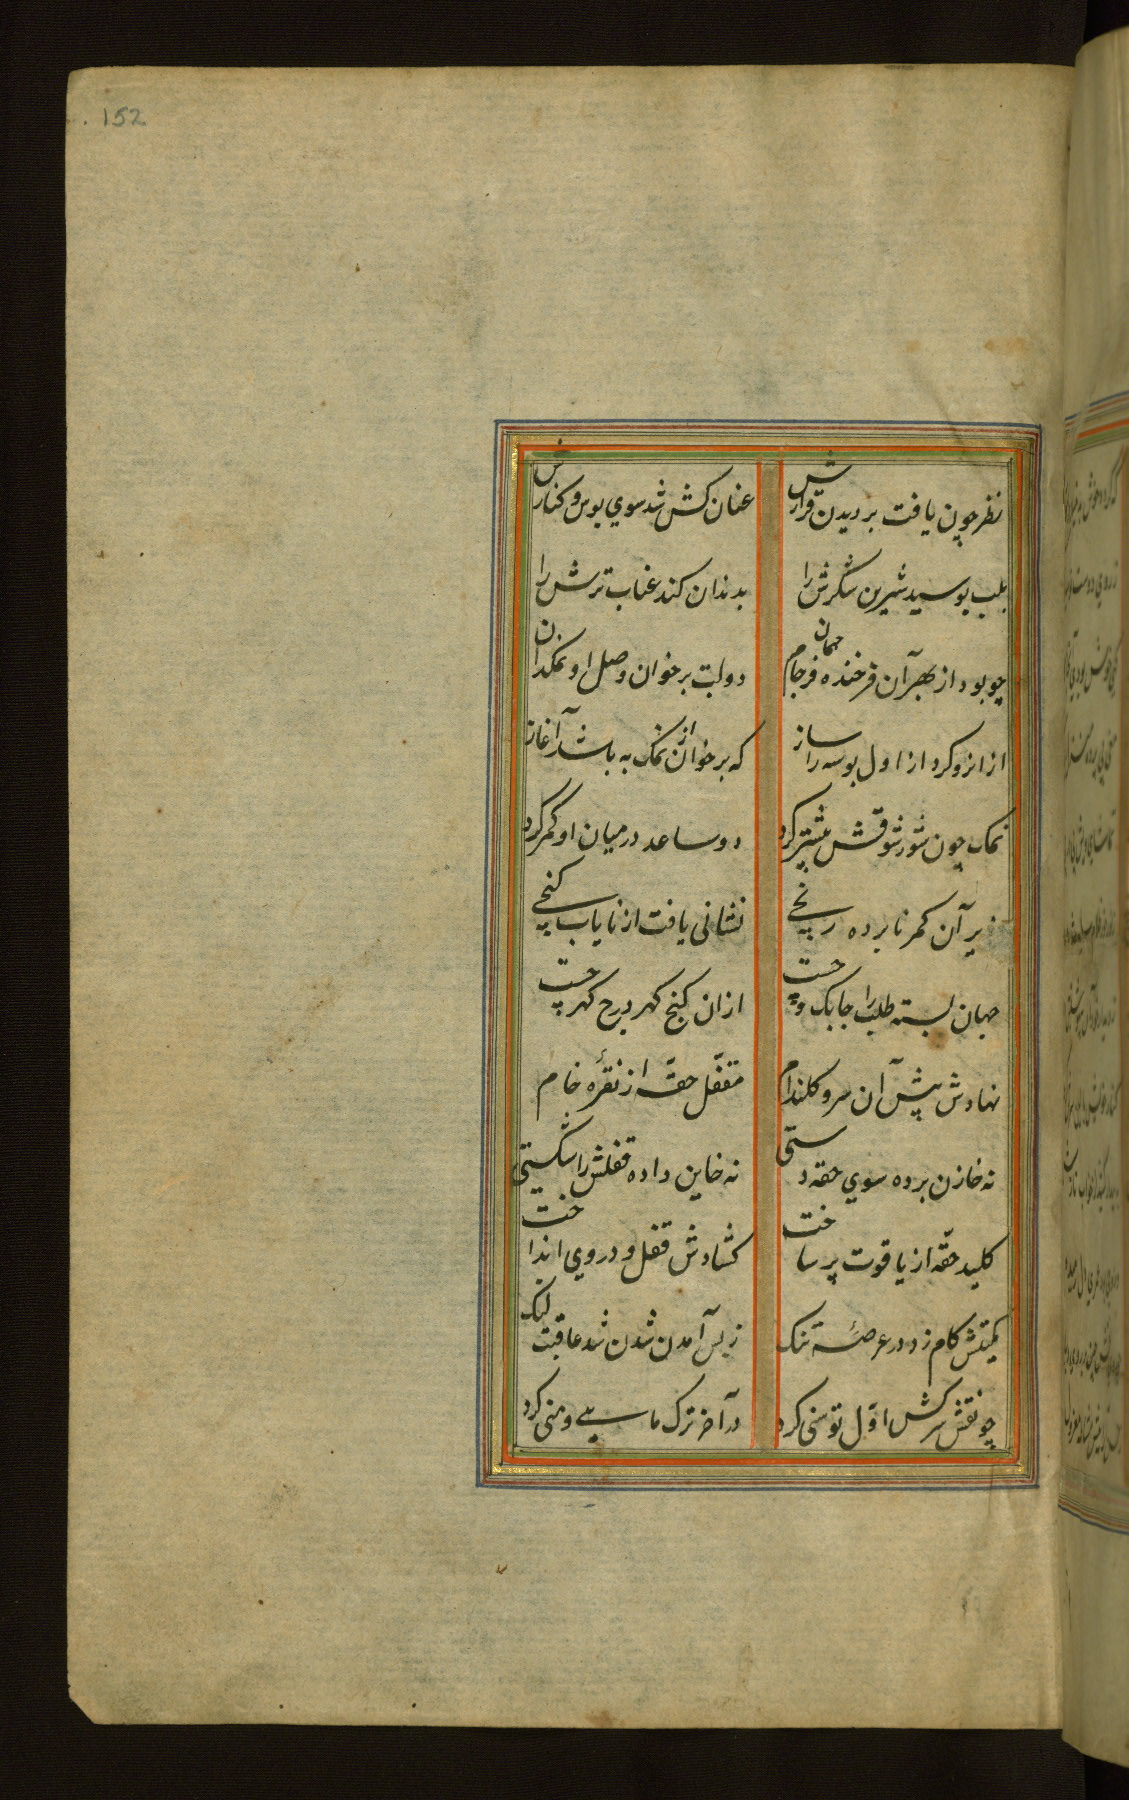 152
نظر چون یافت بر دیدن قرارش
عنان کش شد سوي بوس و کنارش
بلب بوسید شیرین شکرش را
بدندان کند عناب ترش را
چو بود از بهر آن فرخنده فرجام جهان
دو لب بر خوان وصل او نمکدان
از انرو کرد از اول بوسه را ساز
که بر خوان از نمک به باشد آغاز
نمک چون شور شوقش بیشتر کرد
دو ساعد در میان او کمر کرد
زیر آن کمر نابرده رنجي
نشانی یافت از نایاب کنجي
میان بسته طلب را چابک و چست
ازان کنج کهر درج کهر جست
نهادش پیش آن سرو کلندام
مقفّل حقّه از نقرهٔ خام
نه خازن برده سوي حقه دستی
نه خاین داده قفلش را شکستی
کلید حقّه از یاقوت پر ساخت
کشادش قفل و در وي انداخت
کمیتش کام زد در عرصهٔ تنک
ز بس آمدن شدن شد عاقبت لنک
چو نفقش سرکش اوّل توسنی کرد
در آخر ترک مایي و منی کرد